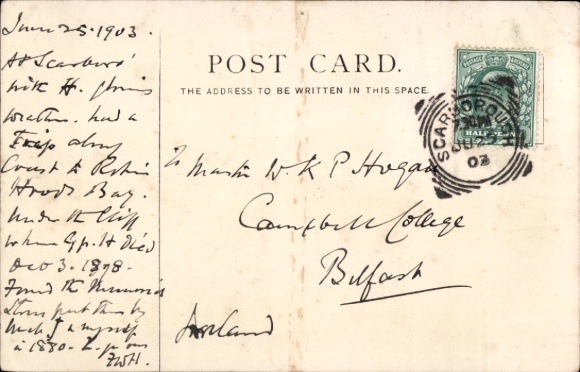 June 25. 1903.
At Scarboro'
with H. glorious
weather. had a
Trip along
Coast to Robin
Hoods Bay.
under the Cliff
where Gp. H died
Dec 3. 1878.
Found the Memorial
Stone put there by
Uncle J & myself
in 1880 -
FWH.
POST CARD.
THE ADDRESS TO BE WRITTEN IN THIS SPACE.
To Master W. K P Hogan
Campbell College
Belfast
Ireland
POSTAGE
HALFPENNY
SCARBOROUGH
JU 25
03